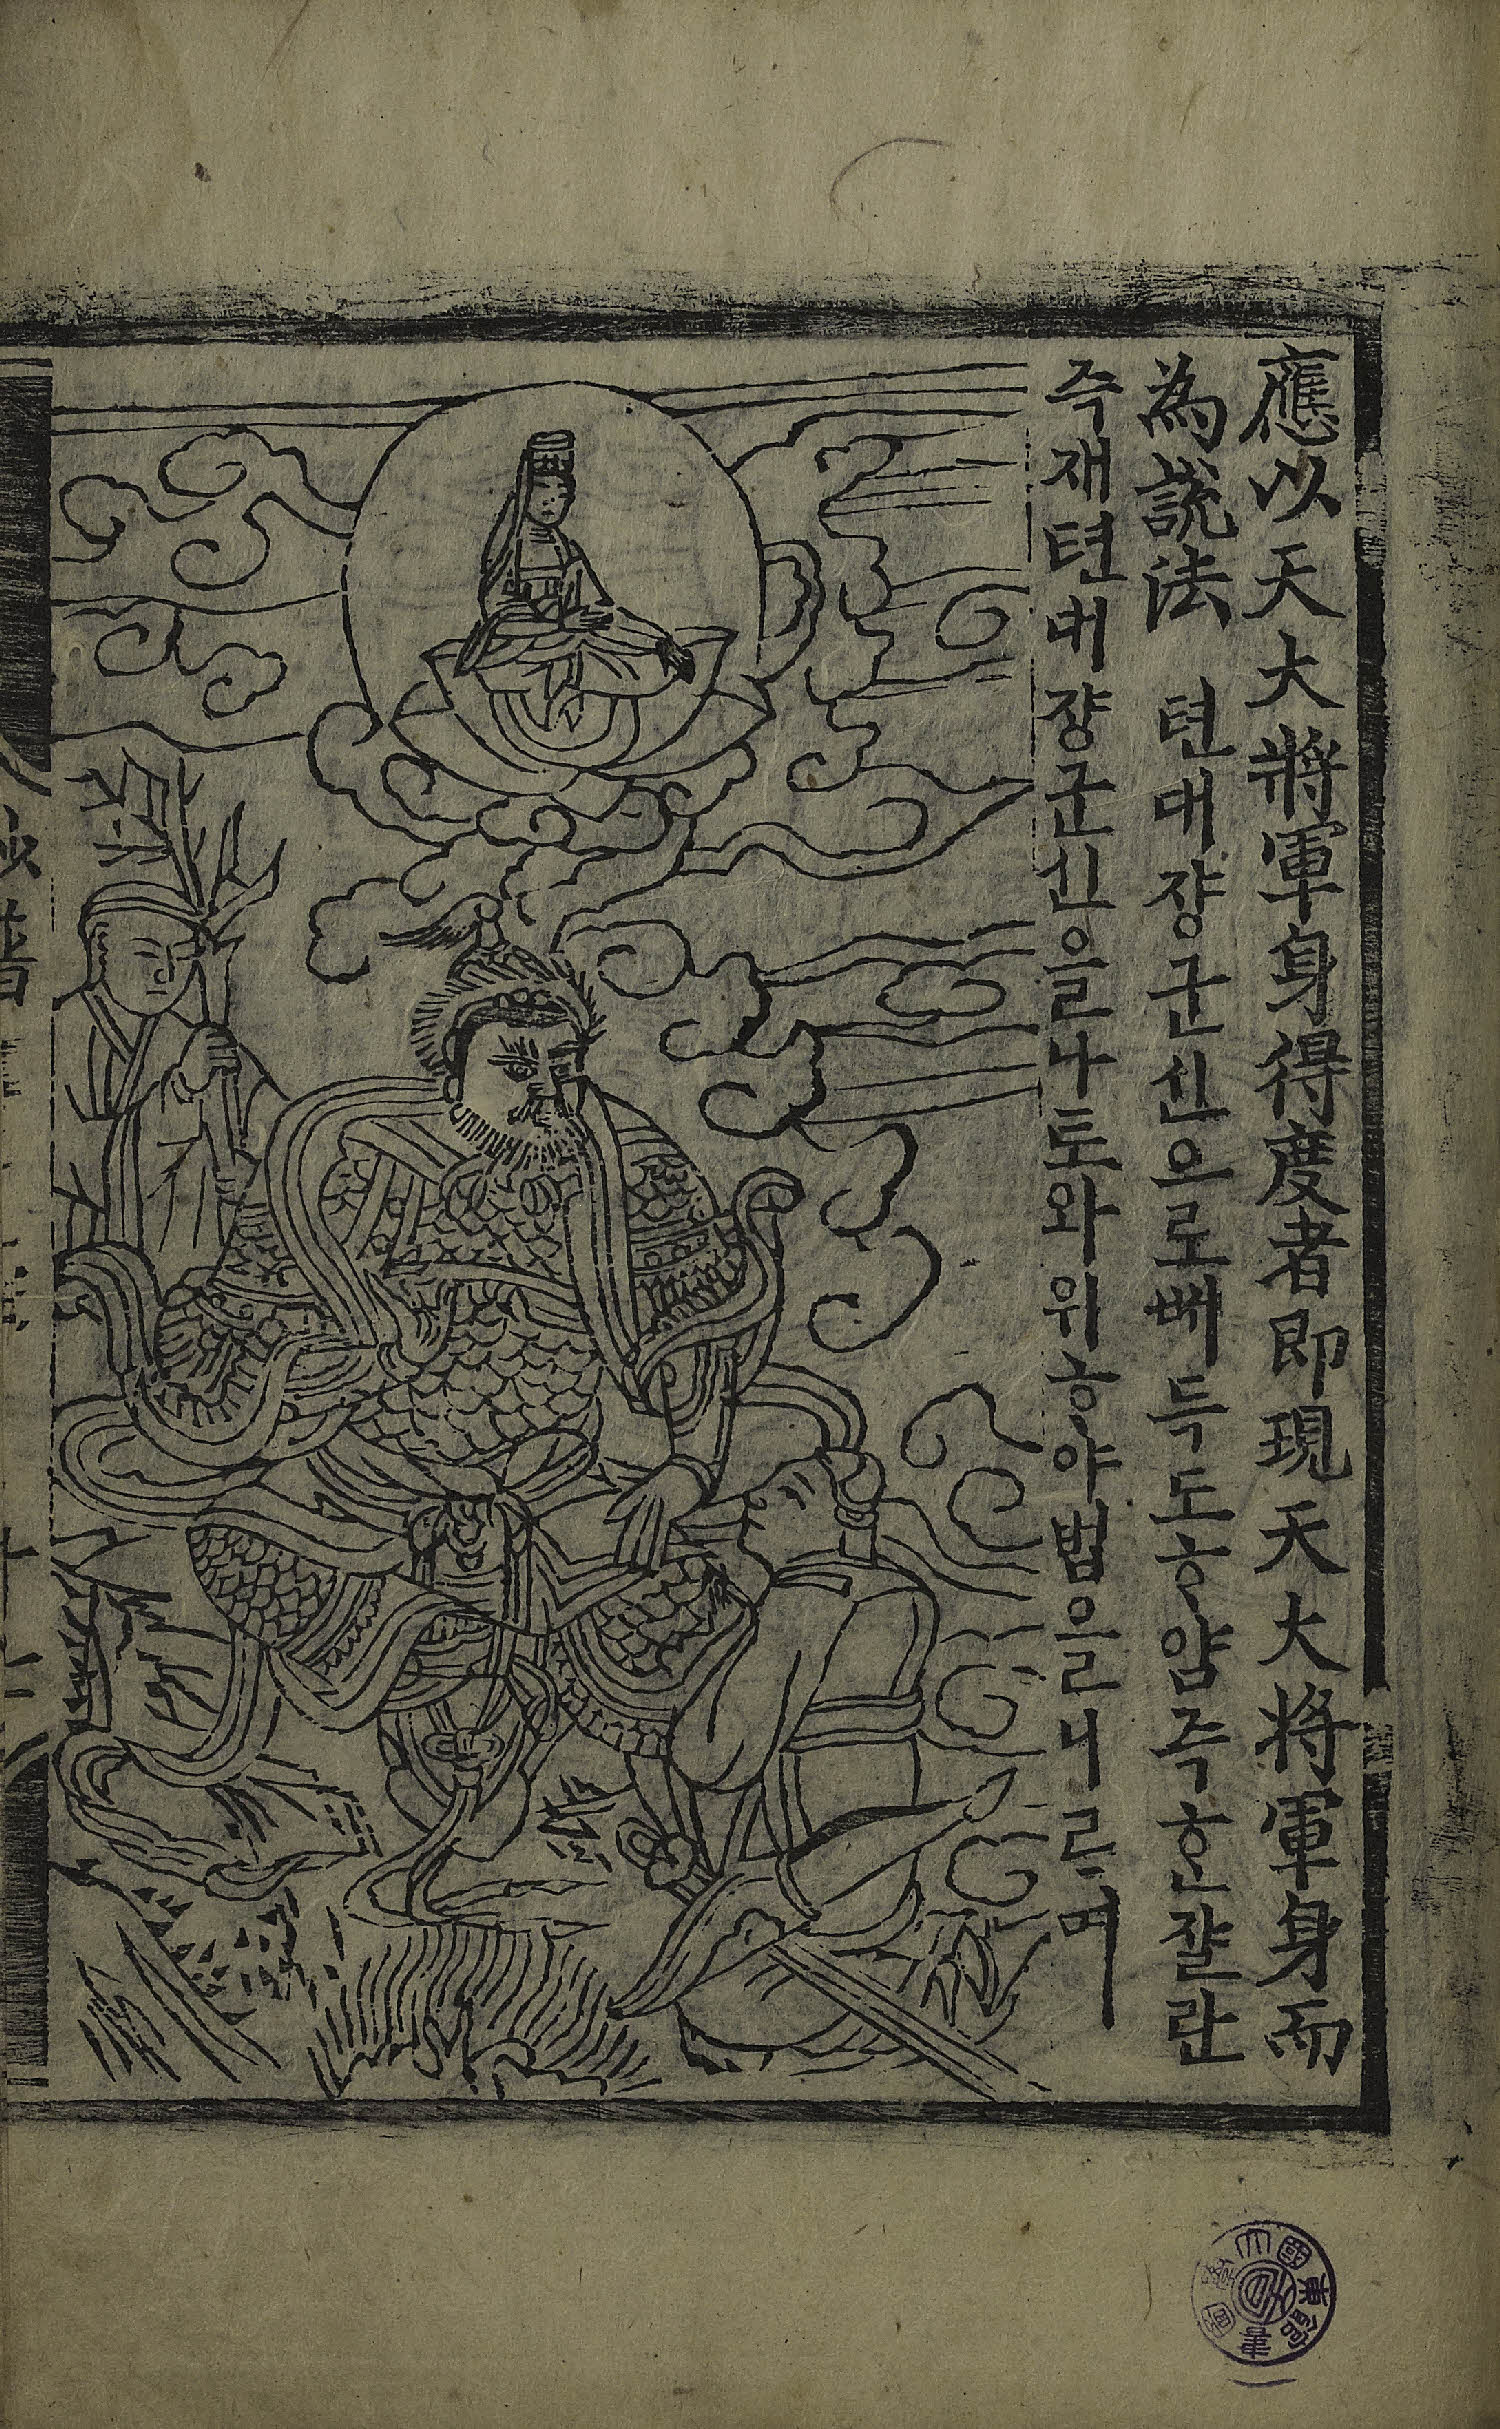 應以天大將軍身得度者即現天大将軍身而
為說法 텬대쟝군신으로뻐 득도ᄒᆞ얌즉ᄒᆞᆫ쟐란
즉재텬대쟝군신을나토와위ᄒᆞ야법을니ᄅᆞ며